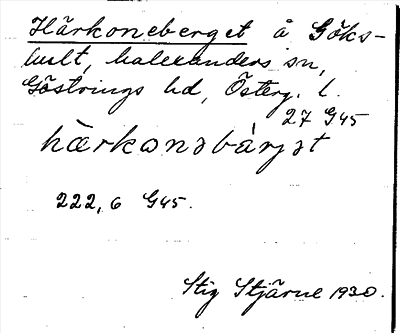 Härkoneberget å Göks-
hult, Kalexanders sn,
Göstrings hd, Österg. l.
27 G45
hàrkωnəbárjət
222, 6 G45.
Stig Stjärne 1930.